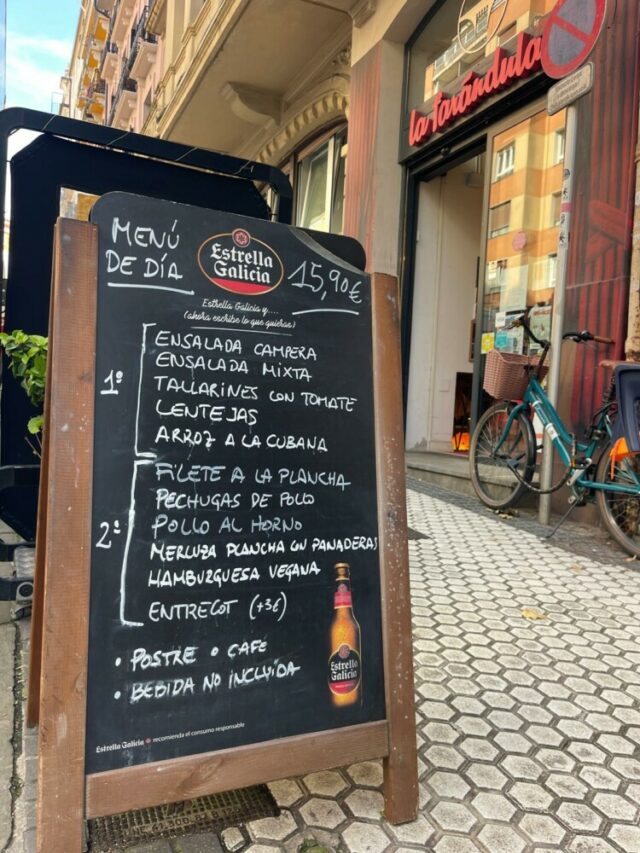 la farándula
MENÚ
DE DÍA
Estrella
Galicia
15,90€
Estrella Galicia y....
(ahora escribe lo que quieras)
1º
ENSALADA CAMPERA
ENSALADA MIXTA
TALLARINES CON TOMATE
LENTEJAS
ARROZ A LA CUBANA
2º
FILETE A LA PLANCHA
PECHUGAS DE POLLO
POLLO AL HORNO
MERLUZA PLANCHA CON PANADERAS
HAMBURGUESA VEGANA
ENTRECOT (+3€)
• POSTRE o CAFE
• BEBIDA NO INCLUÍDA
Estrella
Galicia
Estrella Galicia recomienda el consumo responsable